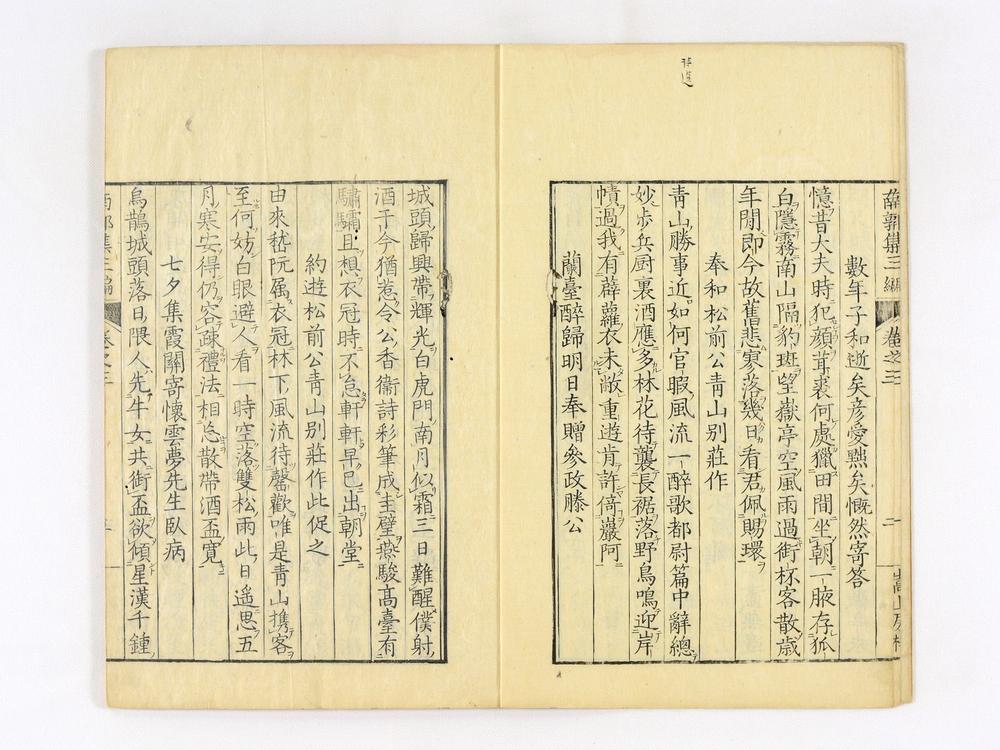 南郭集三編 卷之三 二
數年子和逝矣彦愛黜矣慨然寄答
憶昔大夫時犯顔茸裘何處獵田間坐朝一腋存狐
白隱霧南山隔豹斑望嶽亭空風雨過銜杯客散歳
年閒即今故舊悲寥落幾日看君佩賜環
奉和松前公靑山別莊作
靑山勝事近如何官暇風流一醉歌都尉篇中辭總
妙歩兵厨裏酒應多林花待襲長裾落野鳥鳴迎岸
幘過我有薜蘿衣未敝重遊肯許倚巖阿
蘭臺醉歸明日奉贈參政滕公
城頭歸興帶輝光白虎門南月似霜三日難醒僕射
酒于今猶惹令公香衞詩彩筆成圭璧燕駿髙臺有
驌驦且想衣冠時不怠軒軒早已出朝堂
約遊松前公靑山別莊作此促之
由來嵇阮属衣冠林下風流待馨歡唯是靑山携客
至何妨白眼避人看一時空落雙松雨此日遙思五
月寒安得仍容疎禮法相怱散帶酒盃寬
七夕集霞關寄懷雲夢先生臥病
烏鵲城頭落日隈人先牛女共銜盃欲傾星漢千鍾
卷之三